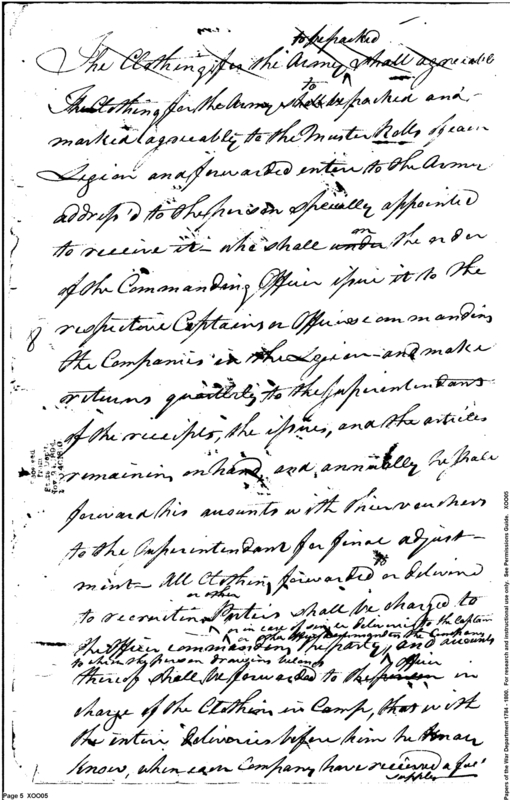 to be packed
The Clothing for the Army shall agreeable
to
The Clothing for the Army shall be packed and
marked agreeably to the Muster Rolls of each
Legion and forwarded entire to the Army
address'd to the person specially appointed
on
to receive it - who shall under the order
of the Commanding Officer issue it to the
respective Captains or Officers commanding
the Companies in the Legion and make
returns quarterly to the Superintendant
of the receipts, the issues, and the articles
remaining on hand, and annually he shall
forward his accounts with their vouchers
to the Superintendant for final adjust-
ment - All Clothing forwarded to or delivered
or other
to recruiting Parties shall be charged to
or in case of single deliveries to the Captain
or other Officer Commanding the Company
the Officer commanding the party, and accounts
to which the person drawing belongs
Officer
thereof shall be forwarded to the person in
charge of the Clothing in Camp, that with
the entire deliveries before him he may
know, when each Company have received a full
supply
8
Page 5 XOO05
Papers of the War Department 1784 - 1800. For research and instructional use only. See Permissions Guide. XOO05